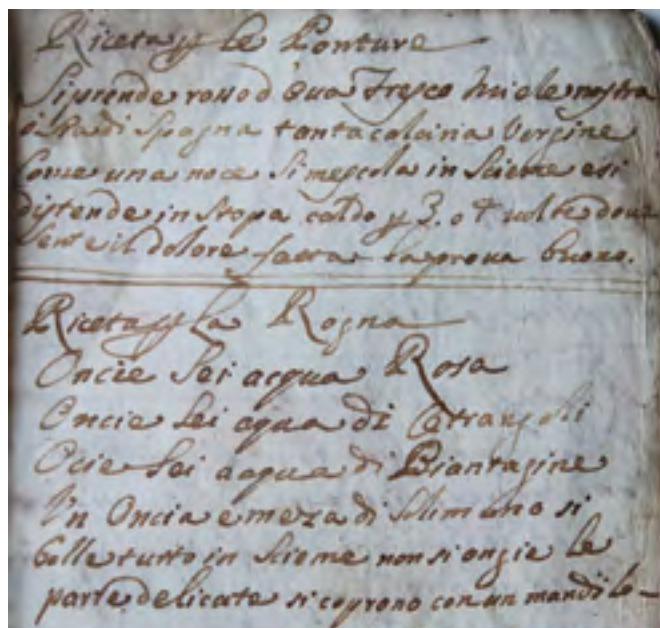 Riceta p le Ponture
Si prende rosso d ova fresco miele nostra
di Spagna tanta calcina Vergine
Come una noce si mescola in scieme e si
distende in stopa caldo p 3. o 4 volte dove
sente il dolore fatta la prova buono.
Riceta p la Rogna
Oncie Sei acqua Rosa
Oncie Sei aqua di Cetrangoli
Ocie Sei acqua di Piantagine
Un Oncia e meza di Solimano si
bolle tutto in scieme non si ongie le
parte delicate si coprono con un mandilo-